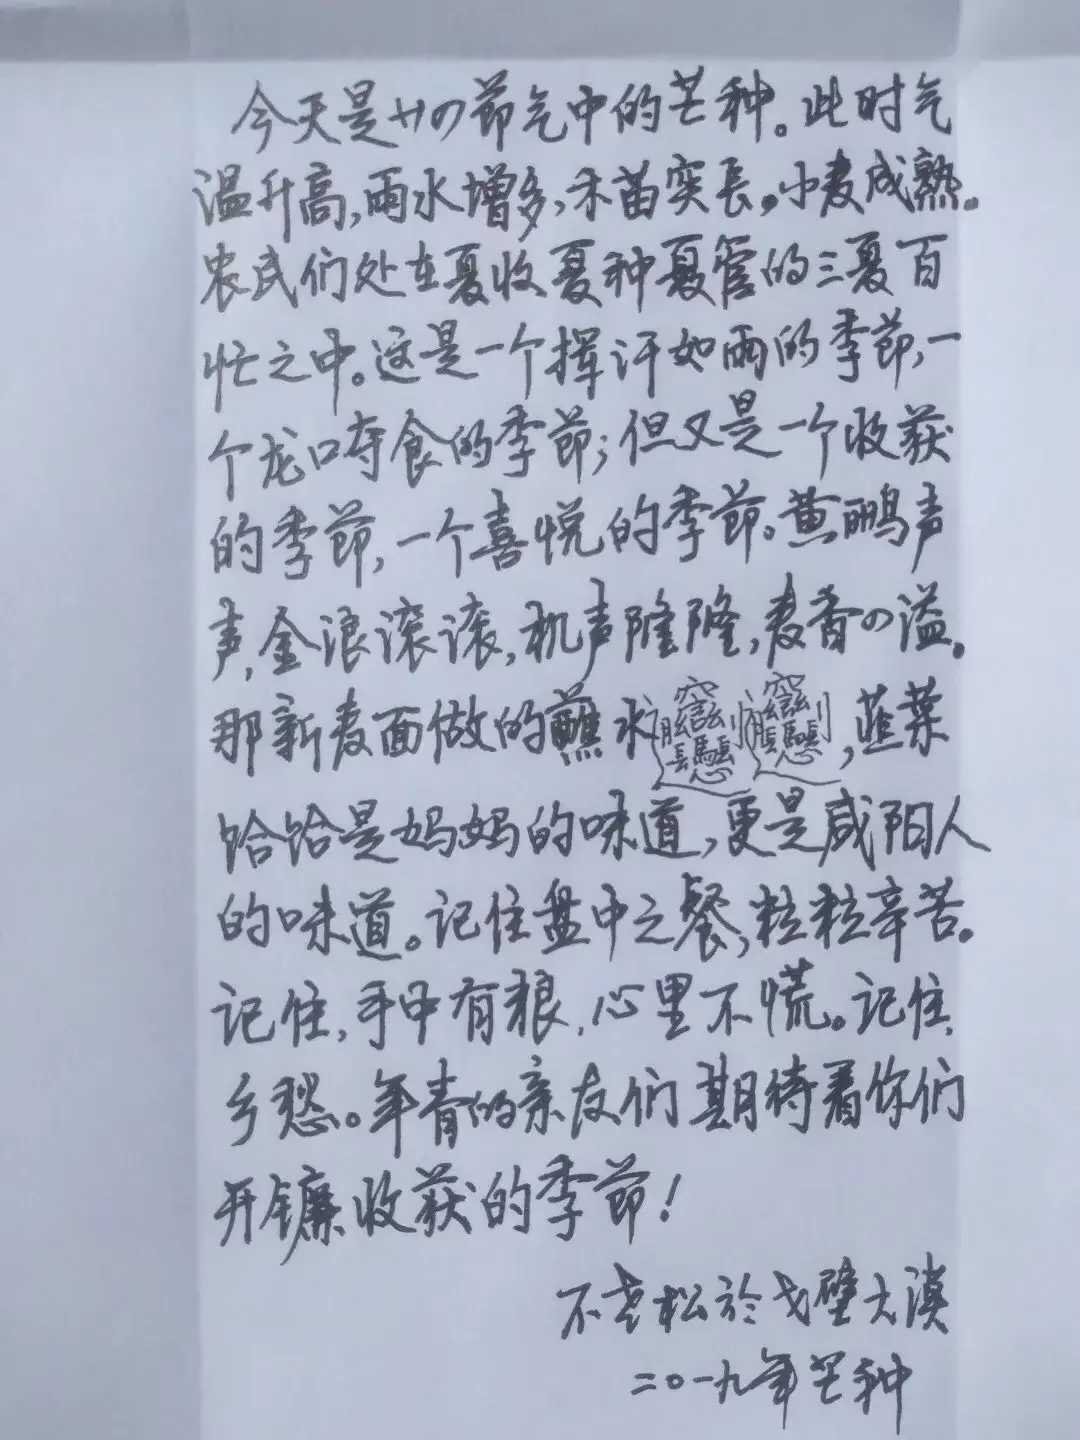 今天是廿四節气中的芒种。此时气
温升高,雨水增多,禾苗突長。小麦成熟。
农民们处在夏收夏种夏管的三夏百
忙之中。这是一个挥汗如雨的季節,一
个龙口夺食的季節;但又是一个收获
的季節,一个喜悦的季節。黄鹂声
声,金浪滚滚,机声隆隆,麦香四溢。
那新麦面做的蘸水𰻝𰻝,韮菜
饸饸是妈妈的味道,更是咸阳人
的味道。记住盘中之餐,粒粒辛苦。
记住,手中有粮,心里不慌。记住,
乡愁。年青的亲友们期待着你们
开镰收获的季節!
不老松於戈壁大漠
二〇一九年芒种